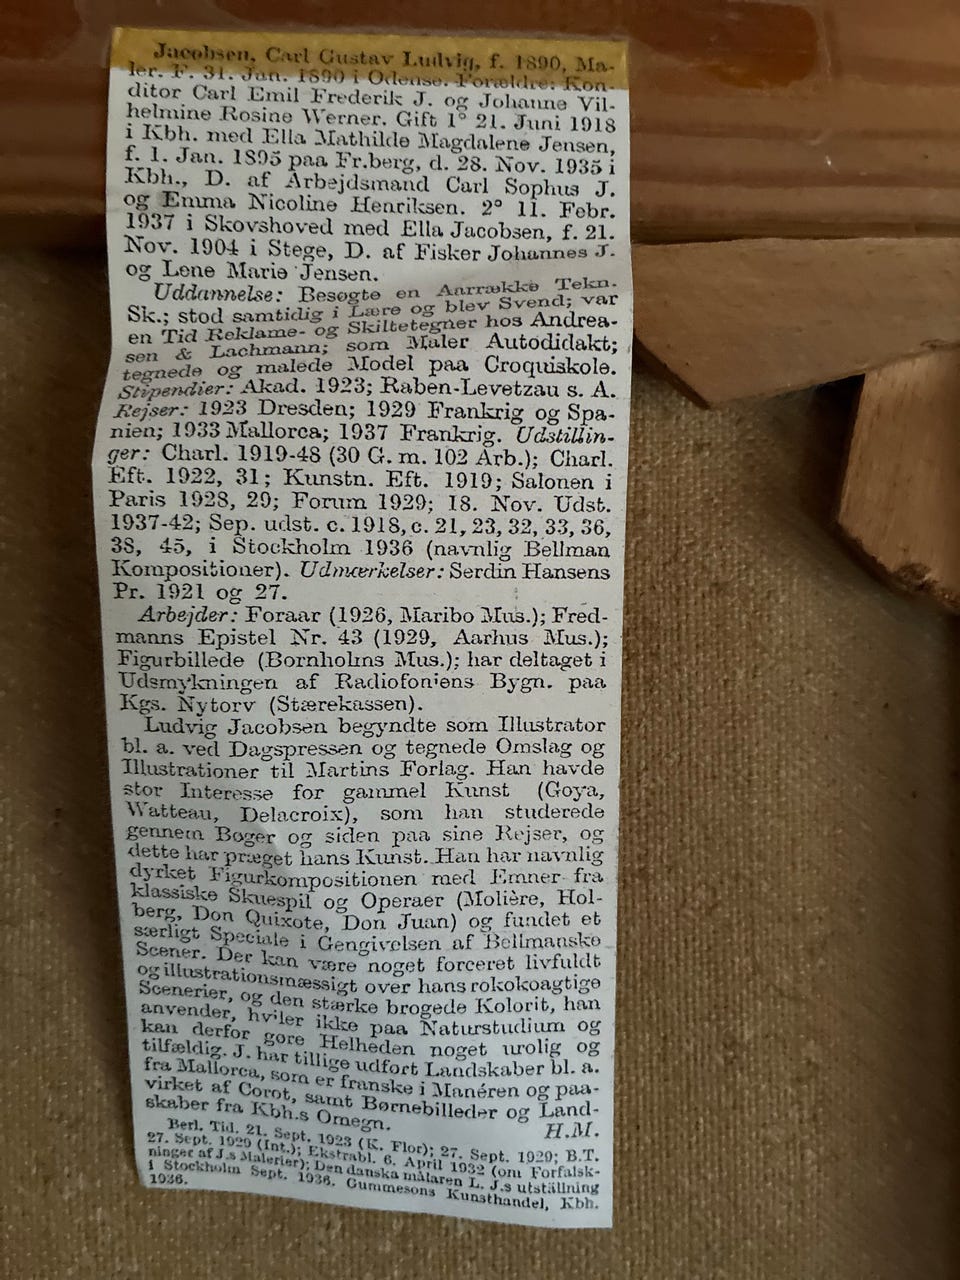 Jacobsen, Carl Gustav Ludvig, f. 1890, Ma-
ler. F. 31. Jan. 1890 i Odense. Forældre: Kon-
ditor Carl Emil Frederik J. og Johanne Vil-
helmine Rosine Werner. Gift 1° 21. Juni 1918
i Kbh. med Ella Mathilde Magdalene Jensen,
f. 1. Jan. 1895 paa Fr.berg, d. 28. Nov. 1935 i
Kbh., D. af Arbejdsmand Carl Sophus J.
og Emma Nicoline Henriksen. 2° 11. Febr.
1937 i Skovshoved med Ella Jacobsen, f. 21.
Nov. 1904 i Stege, D. af Fisker Johannes J.
og Lene Marie Jensen.
Uddannelse: Besøgte en Aarrække Tekn.
Sk.; stod samtidig i Lære og blev Svend; var
en Tid Reklame- og Skiltetegner hos Andrea-
sen & Lachmann; som Maler Autodidakt;
tegnede og malede Model paa Croquiskole.
Stipendier: Akad. 1923; Raben-Levetzau s. A.
Rejser: 1923 Dresden; 1929 Frankrig og Spa-
nien; 1933 Mallorca; 1937 Frankrig. Udstillin-
ger: Charl. 1919-48 (30 G. m. 102 Arb.); Charl.
Eft. 1922, 31; Kunstn. Eft. 1919; Salonen i
Paris 1928, 29; Forum 1929; 18. Nov. Udst.
1937-42; Sep. udst. c. 1918, c. 21, 23, 32, 33, 36,
38, 45, i Stockholm 1936 (navnlig Bellman
Kompositioner). Udmærkelser: Serdin Hansens
Pr. 1921 og 27.
Arbejder: Foraar (1926, Maribo Mus.); Fred-
manns Epistel Nr. 43 (1929, Aarhus Mus.);
Figurbillede (Bornholms Mus.); har deltaget i
Udsmykningen af Radiofoniens Bygn. paa
Kgs. Nytorv (Stærekassen).
Ludvig Jacobsen begyndte som Illustrator
bl. a. ved Dagspressen og tegnede Omslag og
Illustrationer til Martins Forlag. Han havde
stor Interesse for gammel Kunst (Goya,
Watteau, Delacroix), som han studerede
gennem Bøger og siden paa sine Rejser, og
dette har præget hans Kunst. Han har navnlig
dyrket Figurkompositionen med Emner fra
klassiske Skuespil og Operaer (Molière, Hol-
berg, Don Quixote, Don Juan) og fundet et
særligt Speciale i Gengivelsen af Bellmanske
Scener. Der kan være noget forceret livfuldt
og illustrationsmæssigt over hans rokokoagtige
Scenerier, og den stærke brogede Kolorit, han
anvender, hviler ikke paa Naturstudium og
kan derfor gøre Helheden noget urolig og
tilfældig. J. har tillige udført Landskaber bl. a.
fra Mallorca, som er franske i Manéren og paa-
virket af Corot, samt Børnebilleder og Land-
skaber fra Kbh.s Omegn. H.M.
Berl. Tid. 21. Sept. 1923 (K. Flor); 27. Sept. 1929; B.T.
27. Sept. 1929 (Int.); Ekstrabl. 6. April 1932 (om Forfalsk-
ninger af J.s Malerier); Den danska målaren L. J.s utställning
i Stockholm Sept. 1936. Gummesons Kunsthandel, Kbh.
1936.